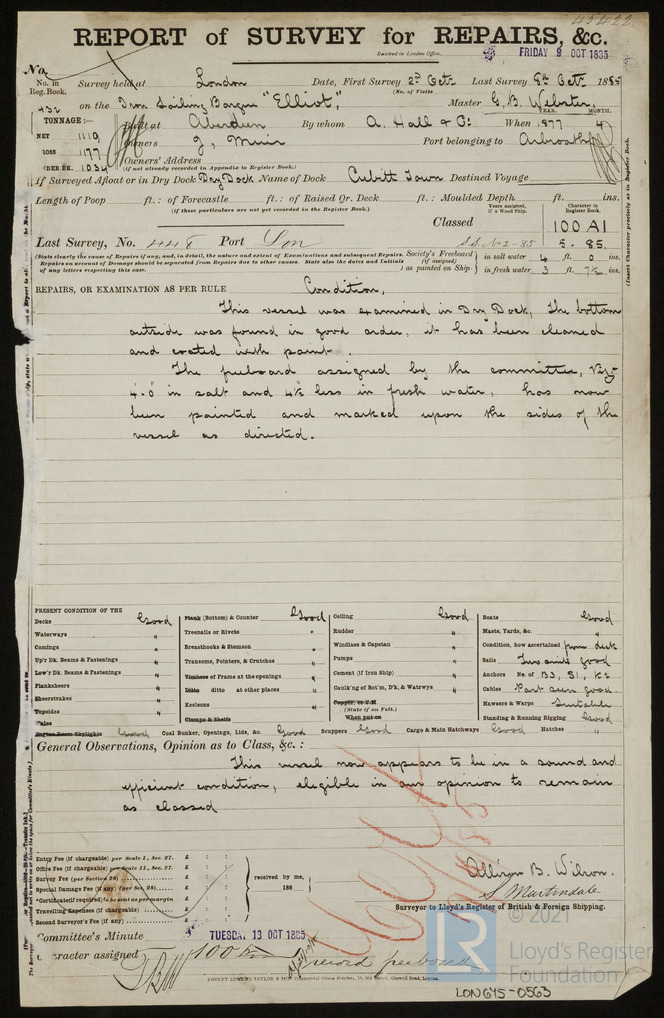 45422
REPORT of SURVEY for REPAIRS, &c.
Received in London Office, FRIDAY 9 OCT 1885
No.
No. in Reg. Book. Survey held at London Date, First Survey 2nd Octr Last Survey 8th Octr 1885
(No. of Visits
432 on the Iron Sailing Barque "Elliot," Master G. B. Webster
TONNAGE:— Built at Aberdeen By whom A. Hall & Co When 1877 4
YEAR. MONTH.
NET 1119
Owners J, Muir Port belonging to Arbroath
GROSS 1177
Owners' Address
UNDER DK. 1034 (if not already recorded in Appendix to Register Book.)
If Surveyed Afloat or in Dry Dock Dry Dock Name of Dock Cubitt Town Destined Voyage
Length of Poop ft.: of Forecastle ft.: of Raised Qr. Deck ft.: Moulded Depth ft. ins.
(if these particulars are not yet recorded in the Register Book.)
Years assigned, if a Wood Ship. Character in Register Book.
Classed 100 A1
Last Survey, No. 448 Port Lon S.S. No 2-85 5-85.
(State clearly the cause of Repairs if any, and, in detail, the nature and extent of Examinations and subsequent Repairs. Repairs on account of Damage should be separated from Repairs due to other causes. State also the Dates and Initials of any letters respecting this case.
Society's Freeboard (if assigned) as painted on Ship in salt water 4 ft. 0 ins.
in fresh water 3 ft. 7½ ins.
(Insert Character precisely as in Register Book.
REPAIRS, OR EXAMINATION AS PER RULE Condition,
This vessel was examined in Dry Dock, The bottom
outside was found in good order, it has been cleaned
and coated with paint.
The freeboard assigned by the committee, Viz-
4.0 in salt and 4½ less in fresh water, has now
been painted and marked upon the sides of the
vessel as directed.
PRESENT CONDITION OF THE
Decks Good
Waterways "
Comings "
Up'r Dk. Beams & Fastenings "
Low'r Dk. Beams & Fastenings "
Planksheers "
Sheerstrakes "
Topsides "
Wales
Engine Room Skylights Good
Plank (Bottom) & Counter Good
Treenails or Rivets "
Breasthooks & Stemson "
Transoms, Pointers, & Crutches "
Timbers of Frame at the openings "
Ditto ditto at other places "
Keelsons "
Clamps & Shelfs
Coal Bunker, Openings, Lids, &c. Good
Ceiling Good
Rudder "
Windlass & Capstan "
Pumps "
Cement (if Iron Ship) "
Caulk'ng of Bot'm, D'k, & Watrwys "
Copper, or Y.M.
(State if on Felt.)
When put on
Scuppers Good Cargo & Main Hatchways Good
Boats Good
Masts, Yards, &c. "
Condition, how ascertained from deck
Sails Two suits good
Anchors No. of B3, S1, K2
Cables Part seen good.
Hawsers & Warps Suitable
Standing & Running Rigging Good
Hatches "
General Observations, Opinion as to Class, &c.:
This vessel now appears to be in a sound and
efficient condition, eligible in our opinion to remain
as classed
Entry Fee (if chargeable) per Scale I., Sec. 27. £ : :
Office Fee (if chargeable) per Scale II., Sec. 27. £ : :
Survey Fee (per Section 28) £ : :
Special Damage Fee (if any) (per Sec. 28) £ : :
*Certificate (if required) to be sent as per margin
Travelling Expenses (if chargeable) £ : :
Second Surveyor's Fee (if any) £ : :
received by me,
188
Allison B. Wilson.
S. Martindale
Surveyor to Lloyd's Register of British & Foreign Shipping.
Committee's Minute TUESDAY 13 OCT 1885
Character assigned 100 A1
record freeboard
ROBERT EDMUND TAYLOR & SON
© 2021
Lloyd's Register
Foundation
LON645-0563